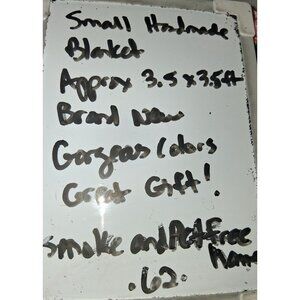 Small Handmade
Blanket
Approx 3.5 x 3.5ft
Brand New
Gorgeous Colors
Great Gift!
Smoke and Pet Free
home
.62.